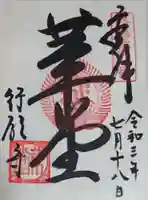 奉拝
令和三年
七月十八日
革堂
行願寺